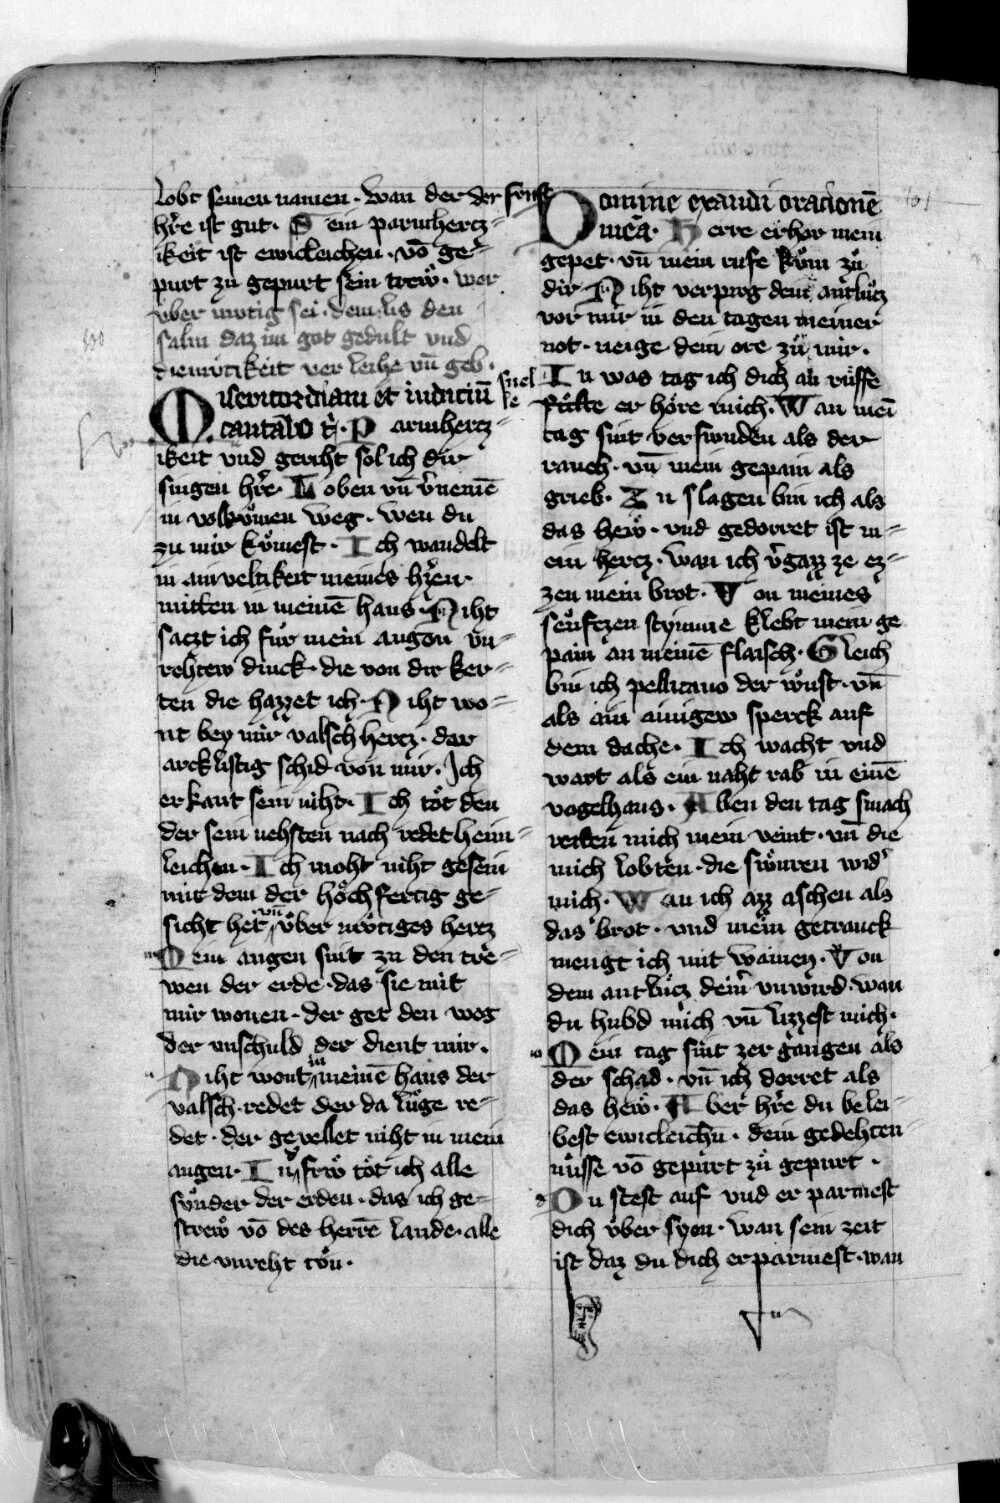 lobt seinen namen · wan der der
hr̄e ist gut · D ein parmhercz-
ikeit ist ewicleichen · vō ge-
purt zu gepurt sein trewͦ · wer
vber mvtig sei · dem lis den
salm daz im got gedult vnd
diemvtikeit ver leihe vn̄ geb ·
Misericordiam et iudiciū
cantabo t̄ · P armhercz-
ikeit vnd gericht sol ich dir
singen hr̄e · L oben vn̄ v̄nemē
in volkvͦmen weg · wen du
zu mir kvͦmest · I ch wandelt
in ainveltikeit meines hr̄zen
mitten in meinē haus · N iht
saczt ich fuͦr mein augen vn-
rehtew dinck · die von dir ker-
ten die hazzet ich · N iht wo-
nt bey mir valsch hercz · dar
arcklistig schid von mir · Ich
erkant sein niht · I ch toͤt den
der sein nehsten nach redet heim-
leichen · I ch moht niht gesein
mit dem der hoͤchfertig ge-
sicht het vn̄ vͦber mvͦtiges hercz
M ein augen sint zu den tre-
wen der erde · das sie mit
mir wonen · der get den weg
der vnschuld der dient mir ·
N iht wont in meinē haus der
valsch redet der da luͤge re-
det · der gevellet niht in mein
augen · I n frwͦ toͤt ich alle
svͦnder der erden · das ich ge-
strewͦ vō des herrē lande · alle
die vnreht tvͦn ·
frist
snel
le
Domine exaudi oracionē
meā · H erre erhor mein
gepet · vn̄ mein rufe kvͦm zuͦ
dir · N iht verpirg dein antluͤcz
vor mir in den tagen meiner
not · neige dein ore zuͦ mir ·
I n was tag ich dich an ruͤffe
er hoͤre mich · W an mei
tag sint verswnden als der
rauch · vn̄ mein gepain als
grieb · Z u slagen bin ich als
das hewͦ · vnd gedorret ist m-
ein hercz · wan ich v̄gazz ze ez-
zen mein brot · V on meines
seuͤfczen stymme klebt mein ge
pain an meinē flaisch · G leich
bin ich pellicano der wuͤst · vn̄
als ain ainigew sperck auf
dem dache · I ch wacht vnd
wart als ein naht rab in einē
vogelhaus · A llen den tag smach
reiten mich mein veint · vn̄ die
mich lobten · die swͦren wid̾
mich · W an ich azz aschen als
das brot · vnd mein getranck
mengt ich mit wainen · V on
dem antluͤcz dein̄ vnwird · wan
du hubd mich vn̄ lizzest mich ·
M ein tag sint zer gangen als
der schad · vn̄ ich dorret als
das hewͦ · A ber hr̄e du belei-
best ewicleichn̄ · dein gedehten-
nuͤsse vō gepurt zuͦ gepurt ·
D u stest auf vnd er parmest
dich vͦber syon · wan sein zeit
ist daz du dich erparmest · wan